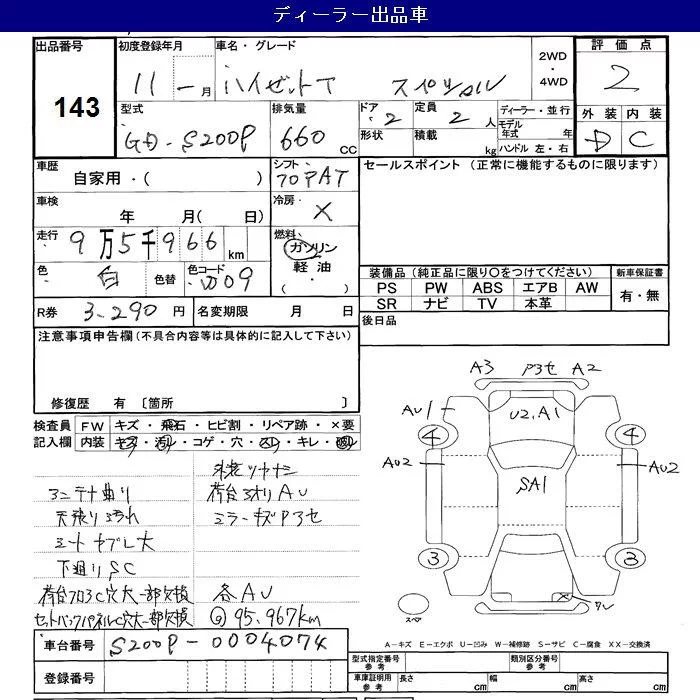 ディーラー出品車
出品番号
143
初度登録年月
11 - 月
車名・グレード
ハイゼットT スペシャル
2WD
・
4WD
評価点
2
型式
GD-S200P
排気量
660 CC
ドア
・2
形状
定員
2 人
積載
kg
ディーラー・並行
モデル年式 年
ハンドル 左・右
外装 内装
D C
車歴
自家用・( )
シフト
冷房
・ ×
車検
年 月( 日)
走行
・ 9万5千966 km
燃料
ガソリン
軽油
・( ・ )
色
・ 白
色替
色コード
W09
R券 3-290 円
名変期限 月 日
セールスポイント (正常に機能するものに限ります)
装備品 (純正品に限り○をつけてください)
新車保証書
PS PW ABS エアB AW
SR ナビ TV 本革
有・無
後日品
注意事項申告欄 (不具合内容等は具体的に記入して下さい)
修復歴 有 〔箇所 〕
検査員 FW キズ・飛石・ヒビ割・リペア跡・×要
記入欄 内装 キズ・汚レ・コゲ・穴・スレ・キレ・
外装ツヤナシ
アンテナ曲り
荷台ヨオリ AU
天張り汚れ
ミラーキズ P3セ
シートヤブレ大
下廻り SC
荷台フロアC穴大一部欠損
各AU
セットバックパネルC穴大一部欠損
95,967km
車台番号 S200P-0004074
登録番号
A3 P3セ A2
AU1
U2,A1
4
4
AU2
AU2
SA1
3
3
×
スペア
A-キズ E-エクボ U-凹み W-補修跡 S-サビ C-腐食 XX-交換済
型式指定番号
参考
類別区分番号
参考
車庫証明用
参考
長さ cm
幅 cm
高さ cm